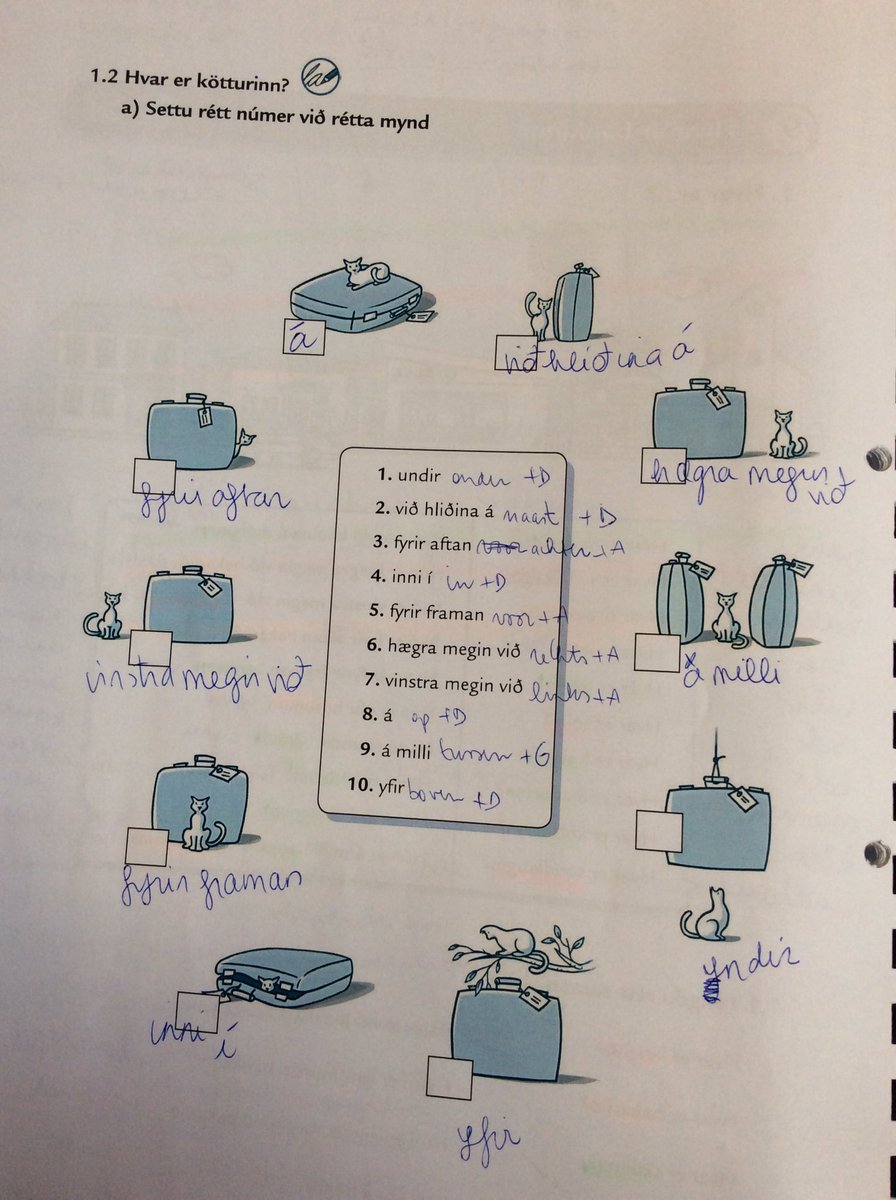 1.2 Hvar er kötturinn?
a) Settu rétt númer við rétta mynd
á
við hliðina á
fyrir aftan
hægra megin
við
1. undir onder +D
2. við hliðina á naast +D
3. fyrir aftan achter +A
4. inni í in +D
5. fyrir framan voor +A
6. hægra megin við rechts +A
7. vinstra megin við links +A
8. á op +D
9. á milli tussen +G
10. yfir boven +D
vinstra megin við
á milli
fyrir framan
undir
inni í
yfir